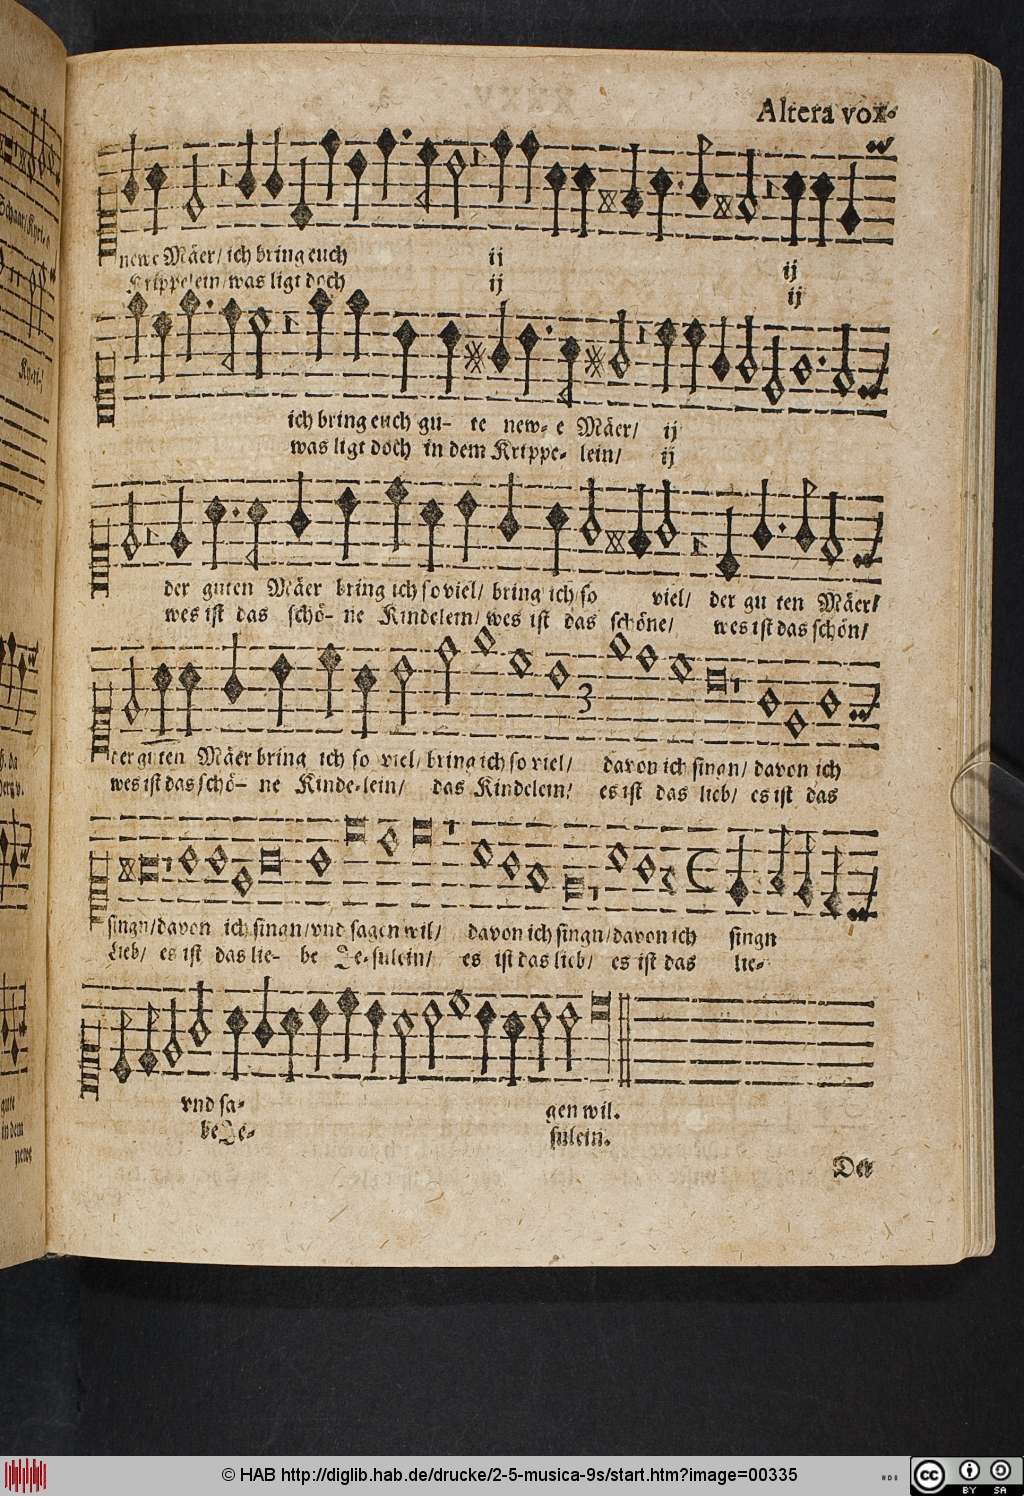 Altera vox.
newe Mäer/ ich bring euch ij ij
Krippelein/ was ligt doch ij ij
ich bring euch gu- te new- e Mäer/ ij
was ligt doch in dem Krippe- lein/ ij
der guten Mäer bring ich so viel/ bring ich so viel/ der gu ten Mäer/
wes ist das schö- ne Kindelein/ wes ist das schöne/ wes ist das schön/
der guten Mäer bring ich so viel/ bring ich so viel/ davon ich singn/ davon ich
wes ist das schö- ne Kinde-lein/ das Kindelein/ es ist das lieb/ es ist das
3
singn/ davon ich singn/ vnd sagen wil/ davon ich singn/ davon ich singn
Lieb/ es ist das lie- be Je-sulein/ es ist das lieb/ es ist das lie-
vnd sa- gen wil.
be Je- sulein.
Der
gute
in dem
newe
© HAB http://diglib.hab.de/drucke/2-5-musica-9s/start.htm?image=00335
cc BY SA